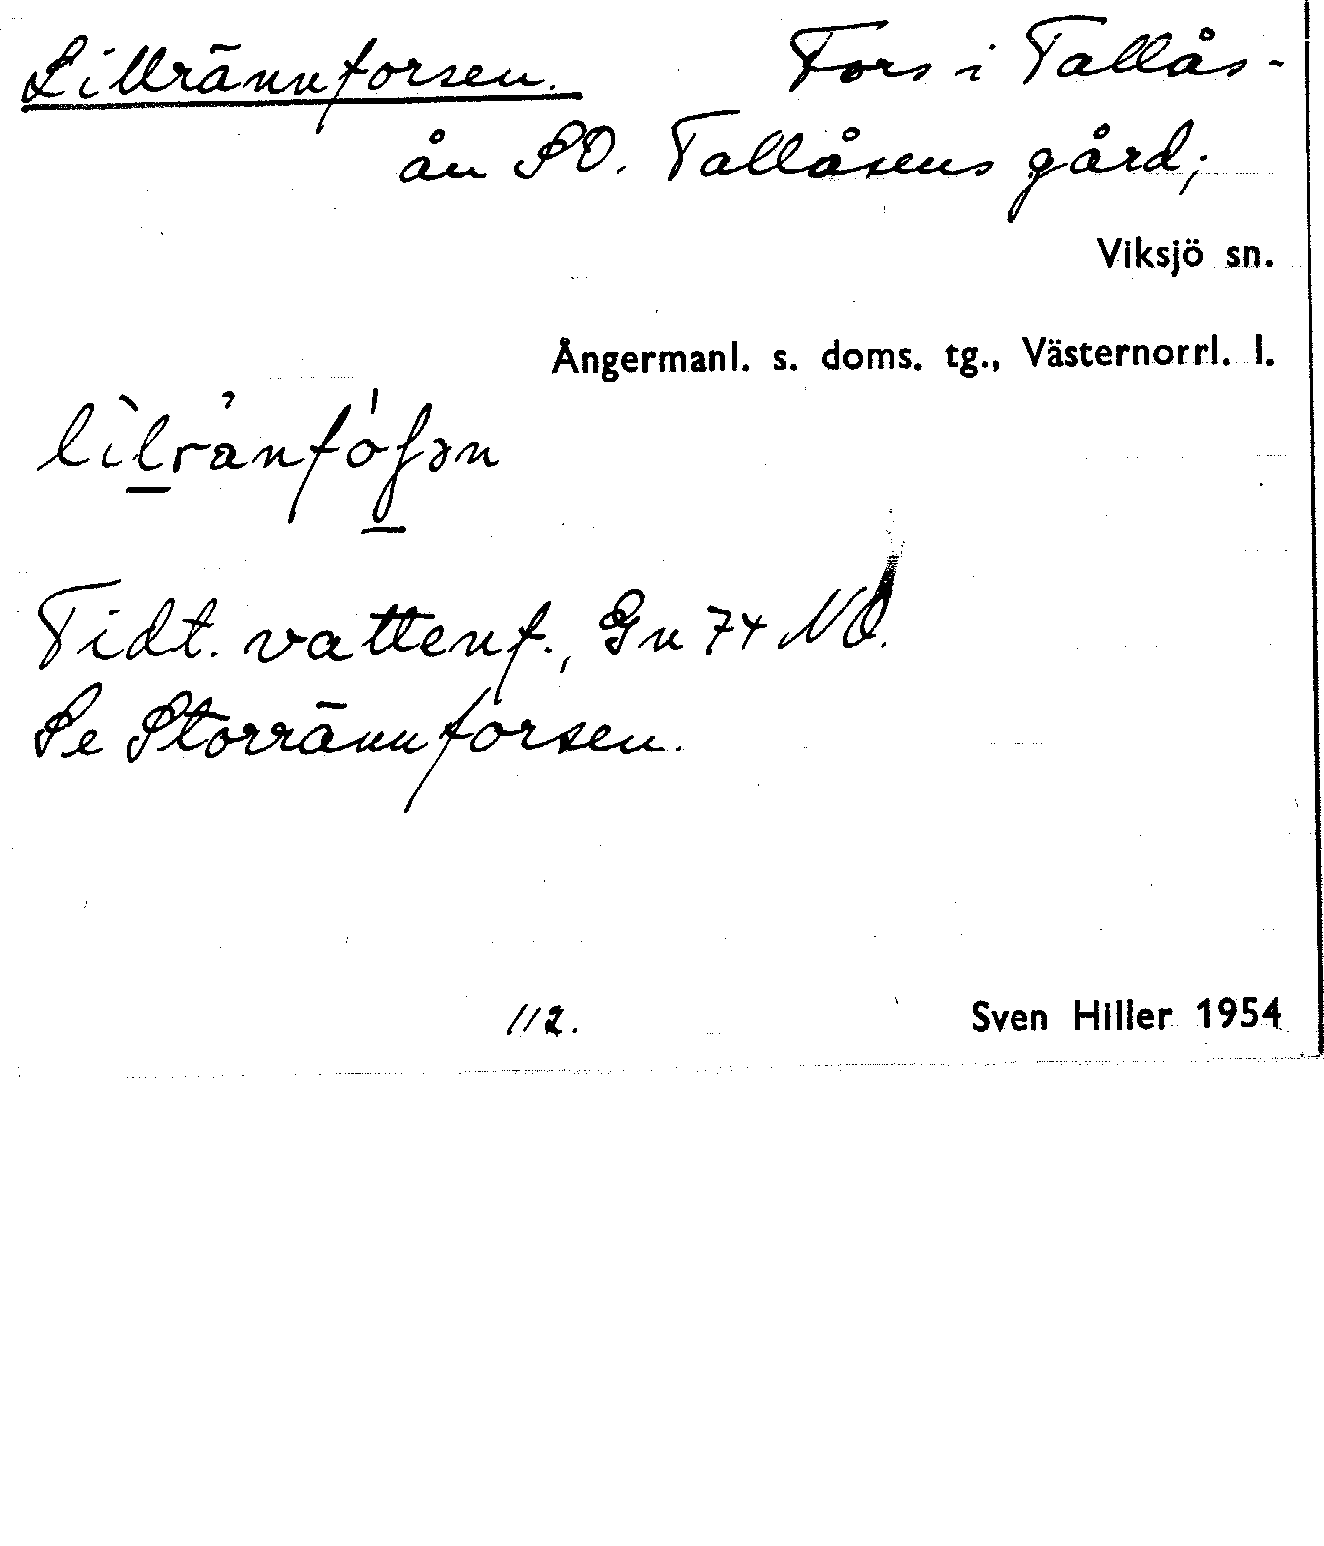 Lillrännforsen. Fors i Tallås-
ån SO. Tallåsens gård;
Viksjö sn.
Ångermanl. s. doms. tg., Västernorrl. l.
Tidt. vattenf., Gn 74 NO.
Se Storrännforsen.
112.
Sven Hiller 1954